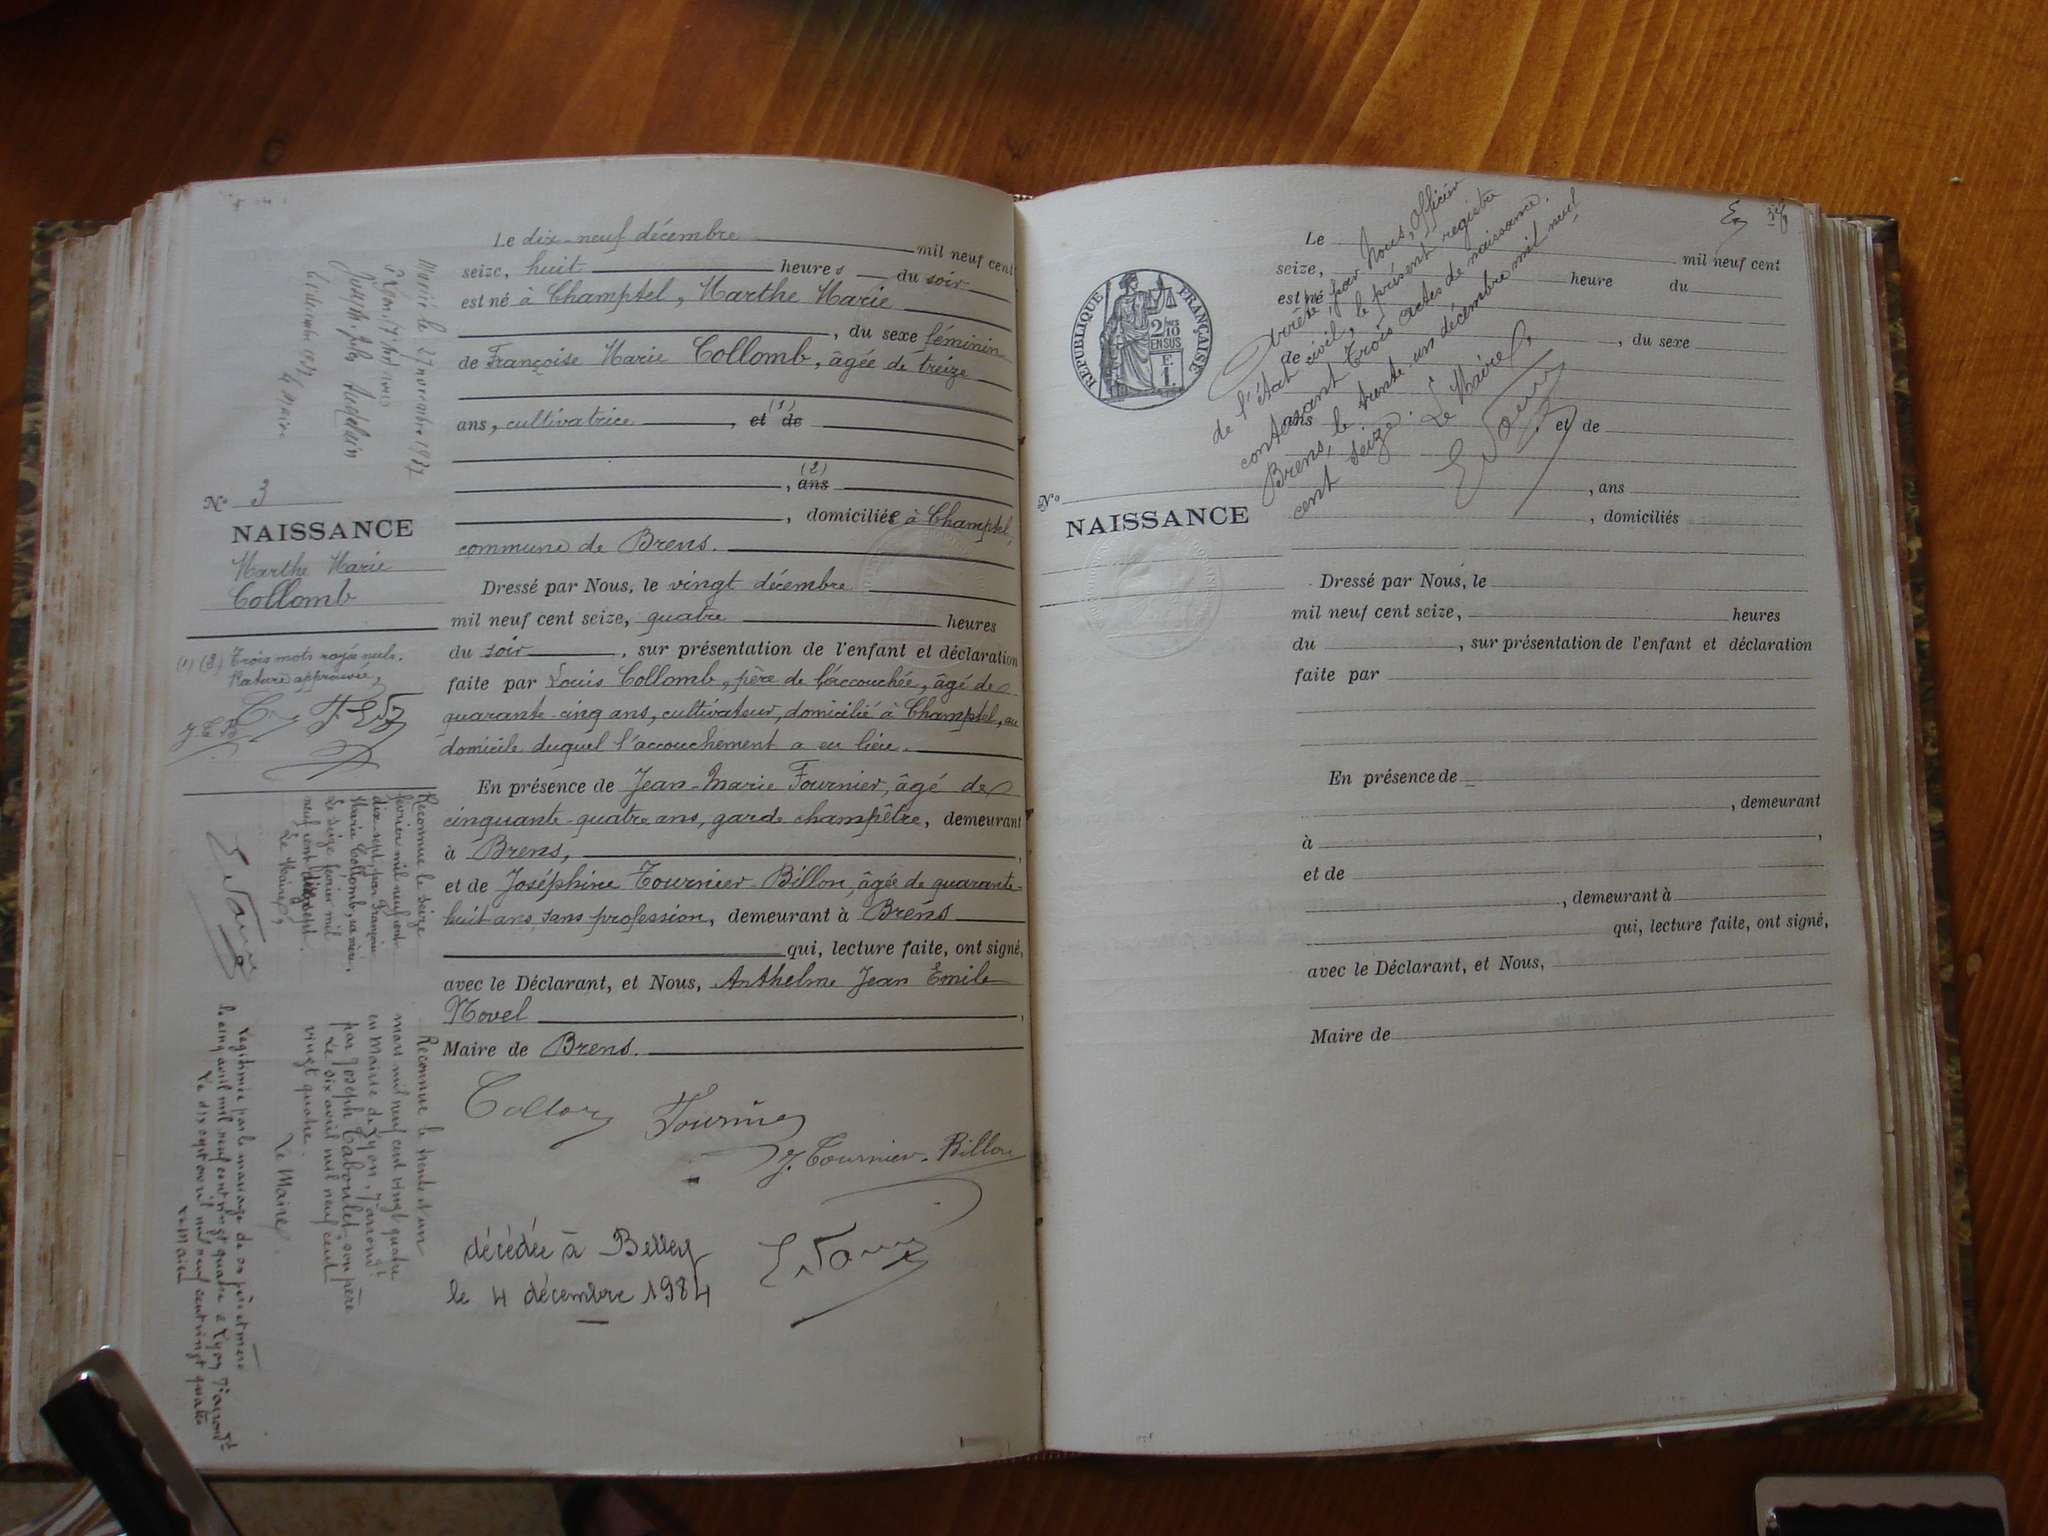 Le dix-neuf décembre mil neuf cent
seize, huit heures du soir
est né à Champtel, Marthe Marie
, du sexe féminin
de Françoise Marie Collomb, âgée de treize
ans, cultivatrice, et (1) de
(2)
, ans
, domiciliée à Champtel,
commune de Brens.
Dressé par Nous, le vingt décembre
mil neuf cent seize, quatre heures
du soir, sur présentation de l'enfant et déclaration
faite par Louis Collomb, père de l'accouchée, âgé de
quarante-cinq ans, cultivateur, domicilié à Champtel, au
domicile duquel l'accouchement a eu lieu.
En présence de Jean-Marie Fournier, âgé de
cinquante-quatre ans, garde champêtre, demeurant
à Brens,
et de Joséphine Tournier-Billon, âgée de quarante-
huit ans, sans profession, demeurant à Brens
qui, lecture faite, ont signé,
avec le Déclarant, et Nous, Anthelme Jean Emile
Novel
Maire de Brens.
Collomb Fournier
J. Tournier-Billon
décédée à Belley
le 4 décembre 1984
Marié le 27 novembre 1937
Joseph Jules
Le Maire
No 3
NAISSANCE
Marthe Marie
Collomb
(1) (2) Trois mots rayés nuls.
Rature approuvée,
J.T.B
Reconnue le seize
février mil neuf cent
dix-sept, par Françoise
Marie Collomb, sa mère,
Le seize février mil
neuf cent dix-sept.
Le Maire,
Reconnue le trente et un
mars mil neuf cent vingt quatre
en Mairie de Lyon, 7e arrondt
par Joseph Taboulet son père
Le six avril mil neuf cent
vingt quatre.
Le Maire.
Légitimée par le mariage de ses père et mère
le cinq avril mil neuf cent vingt quatre à Lyon 7e arrondt
Le dix août mil neuf cent vingt quatre
Le Maire
Arrêté, par Nous, Officier
de l'état civil, le présent registre
contenant trois actes de naissance.
Brens, le trente-un décembre mil neuf
cent seize. Le Maire,
RÉPUBLIQUE FRANÇAISE
2/10
EN SUS
Le mil neuf cent
seize, heure du
est né
, du sexe
de
ans et de
, ans
, domiciliés
No
NAISSANCE
Dressé par Nous, le
mil neuf cent seize, heures
du , sur présentation de l'enfant et déclaration
faite par
En présence de
, demeurant
à ,
et de
, demeurant à
qui, lecture faite, ont signé,
avec le Déclarant, et Nous,
Maire de